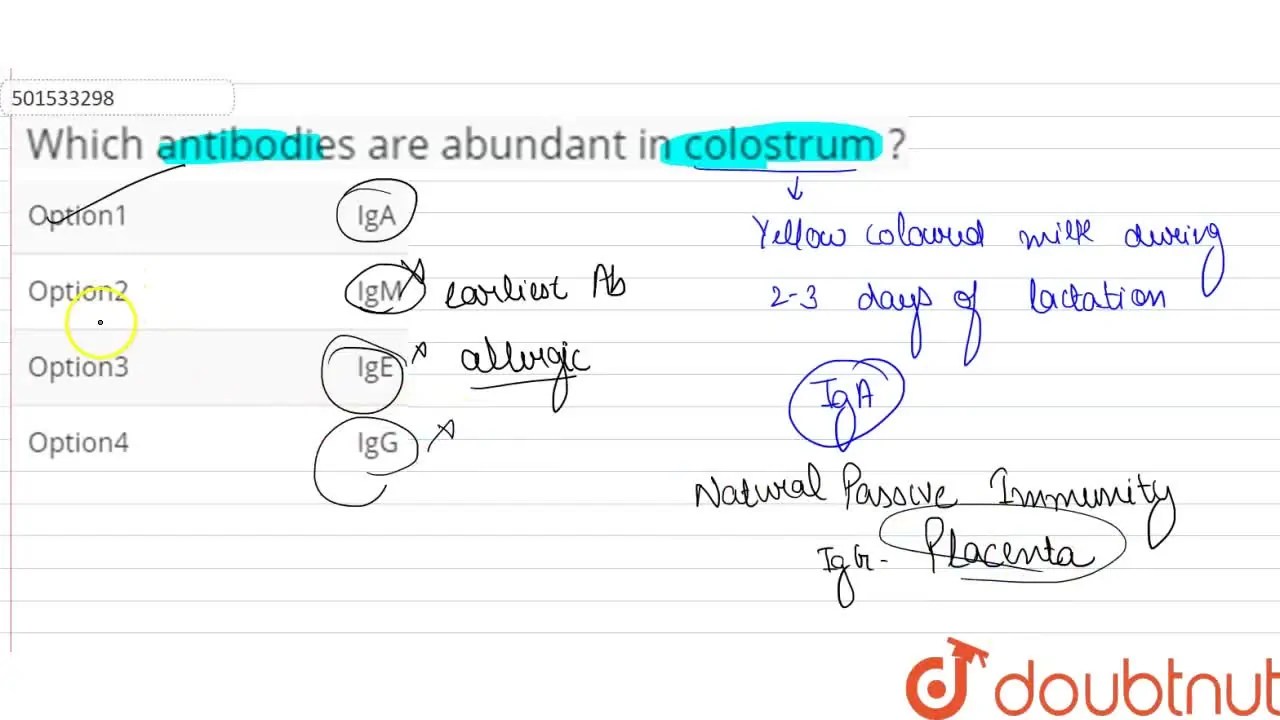 501533298
Which antibodies are abundant in colostrum ?
Option1 IgA
Option2 IgM earliest Ab
Option3 IgE allergic
Option4 IgG
Yellow coloured milk during
2-3 days of lactation
IgA
Natural Passive Immunity
IgG- Placenta
doubtnut